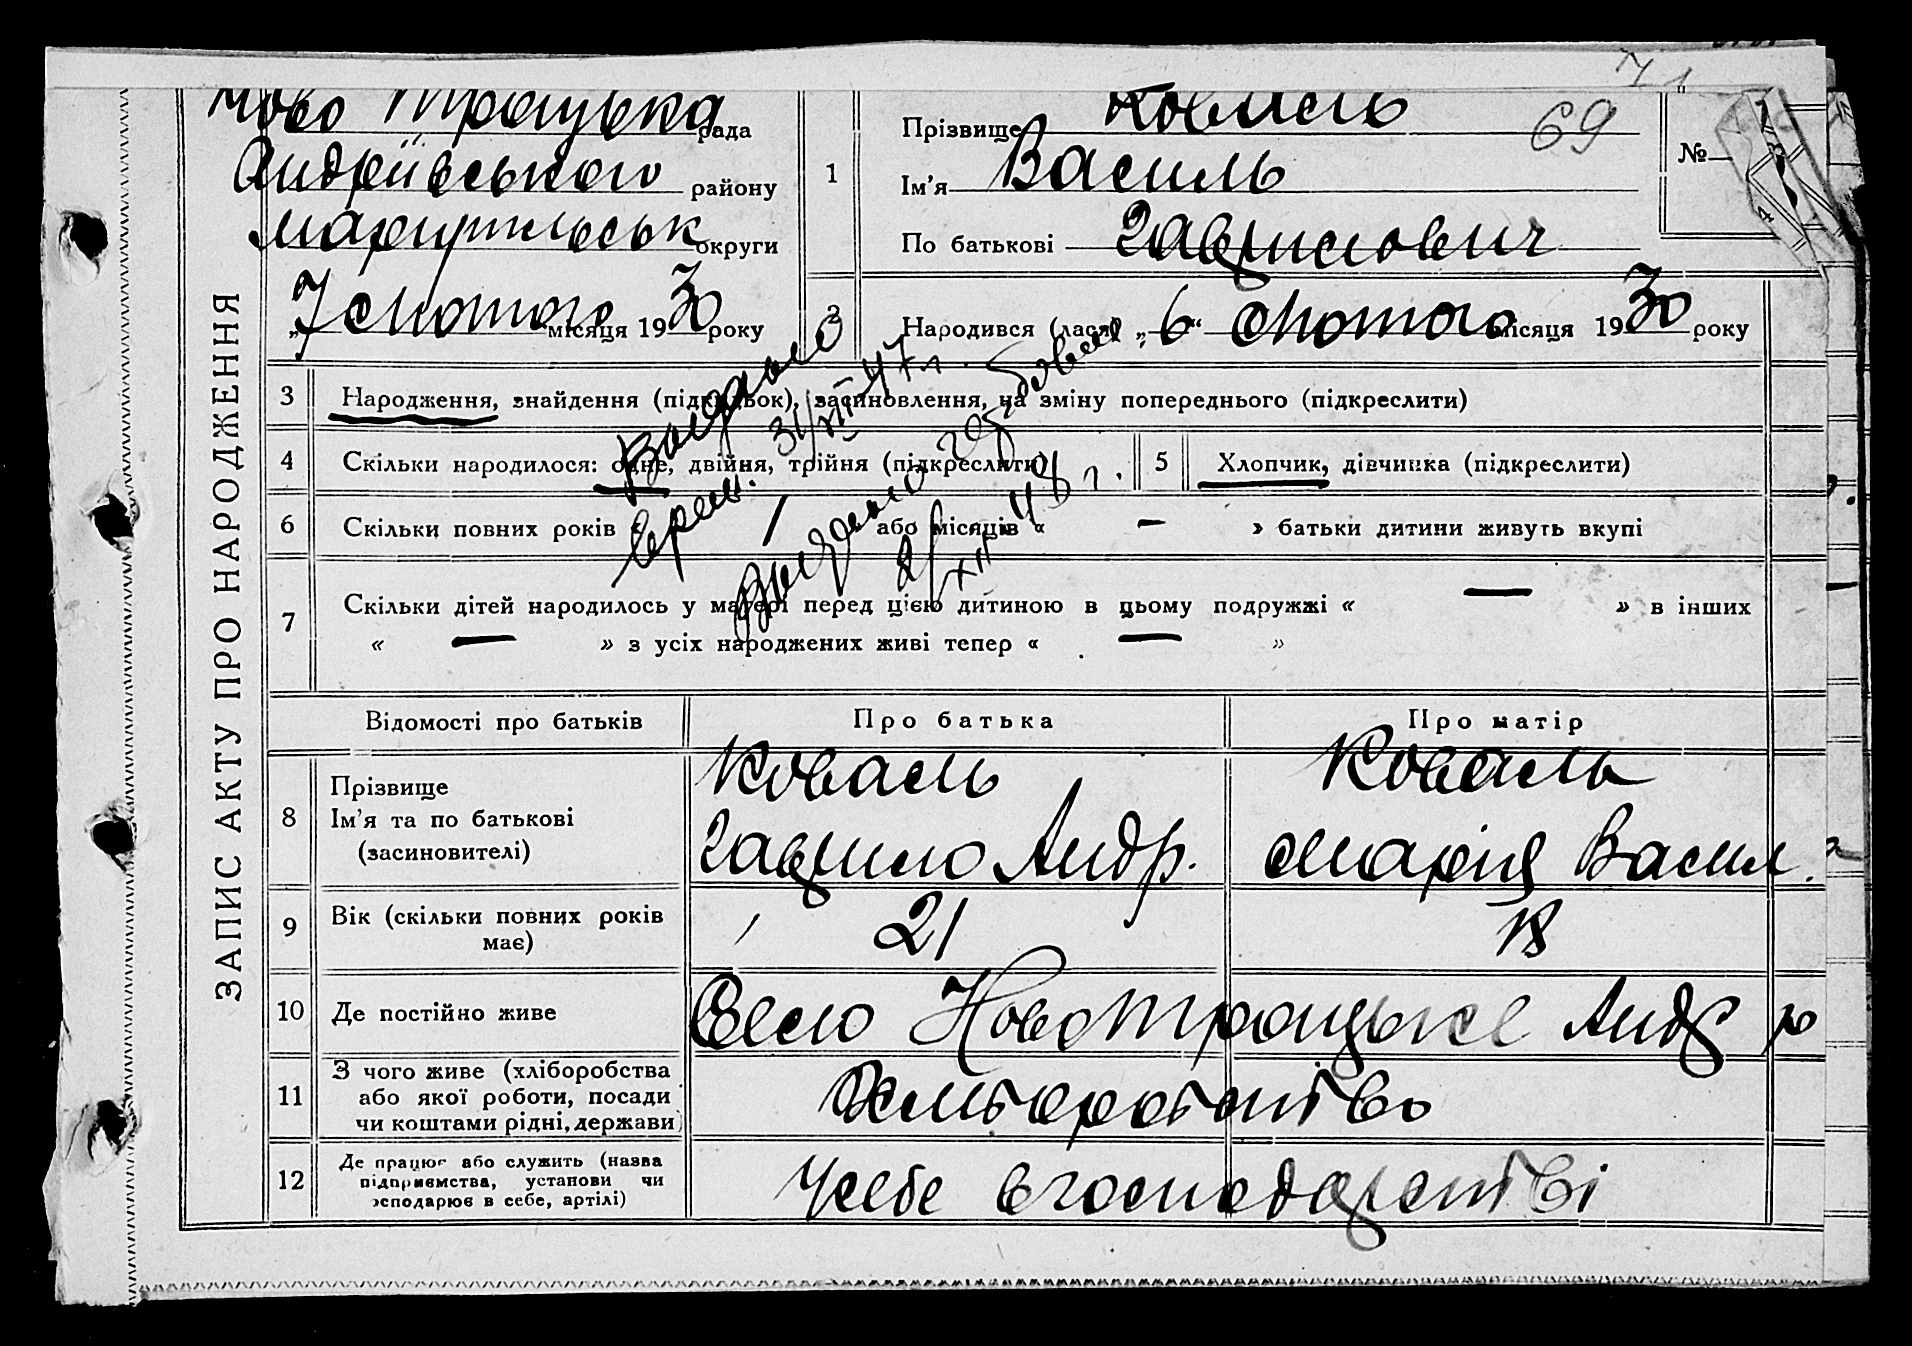 71
69
Ново Троцька рада
Андріївського району
Маріупільськ округи
„7 лютого місяця 1930 року
1
Прізвище Коваль
Ім'я Василь
По батькові Гаврилович
№
2
Народився (лася) „6“ лютого місяця 1930 року
ЗАПИС АКТУ ПРО НАРОДЖЕННЯ
3 Народження, знайдення (підкидьок), засиновлення, на зміну попереднього (підкреслити)
4 Скільки народилося: одне, двійня, трійня (підкреслити) 5 Хлопчик, дівчинка (підкреслити)
6 Скільки повних років « 1 або місяців « — » батьки дитини живуть вкупі
7 Скільки дітей народилось у матері перед цією дитиною в цьому подружжі « — » в інших
« — » з усіх народжених живі тепер « — »
Выдано
31/VII 47 г.
Выдано
2/XII-48 г.
Відомості про батьків Про батька Про матір
8 Прізвище Коваль Коваль
Ім'я та по батькові Гаврило Андр. Марія Васил.
(засиновителі)
9 Вік (скільки повних років має) 21 18
10 Де постійно живе Село Новотроцьке Андр р
11 З чого живе (хліборобства
або якої роботи, посади
чи коштами рідні, держави) Хліборобство
12 Де працює або служить (назва
підприємства, установи чи
господарює в себе, артілі) У себе в господарстві